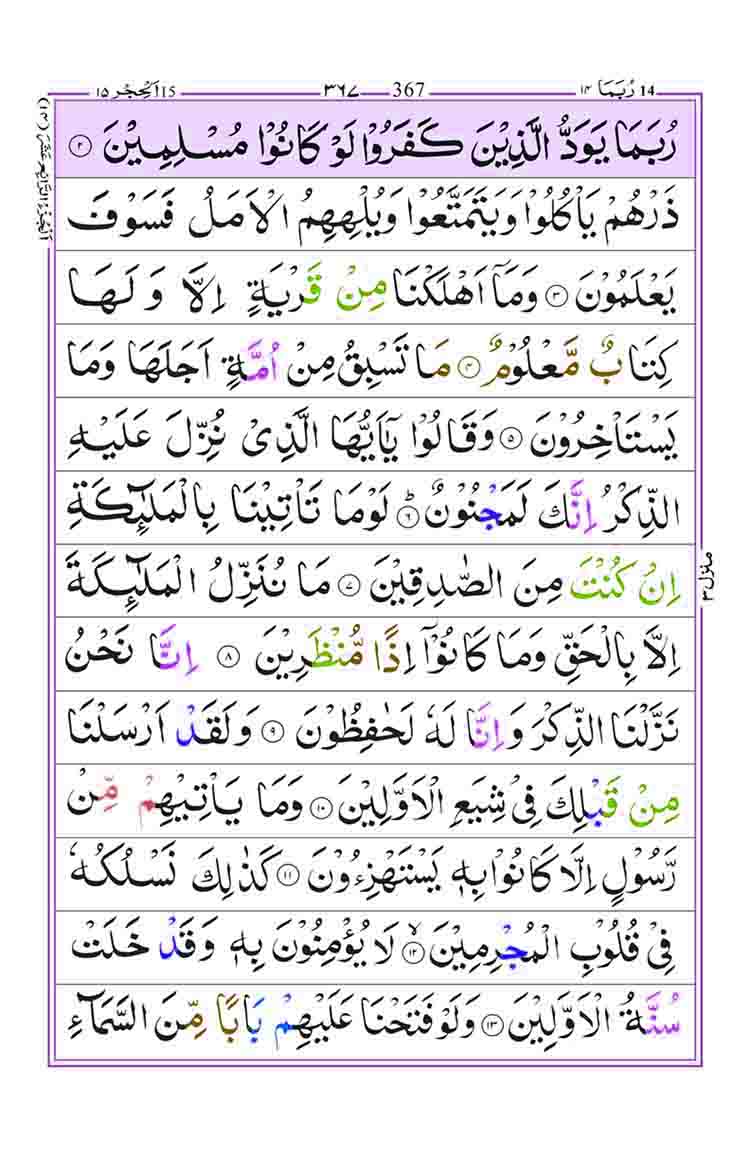 14 رُبَمَا ١٤ 367 ٣٦٧ 15 اَلْحِجْر ١٥
رُبَمَا يَوَدُّ الَّذِيْنَ كَفَرُوْا لَوْ كَانُوْا مُسْلِمِيْنَ ٢
ذَرْهُمْ يَاْكُلُوْا وَيَتَمَتَّعُوْا وَيُلْهِهِمُ الْاَمَلُ فَسَوْفَ
يَعْلَمُوْنَ ٣ وَمَاۤ اَهْلَكْنَا مِنْ قَرْيَةٍ اِلَّا وَلَهَا
كِتَابٌ مَّعْلُوْمٌ ٤ مَا تَسْبِقُ مِنْ اُمَّةٍ اَجَلَهَا وَمَا
يَسْتَاْخِرُوْنَ ٥ وَقَالُوْا يٰۤاَيُّهَا الَّذِىْ نُزِّلَ عَلَيْهِ
الذِّكْرُ اِنَّكَ لَمَجْنُوْنٌ ؕ ٦ لَوْمَا تَاْتِيْنَا بِالْمَلٰٓئِكَةِ
اِنْ كُنْتَ مِنَ الصّٰدِقِيْنَ ٧ مَا نُنَزِّلُ الْمَلٰٓئِكَةَ
اِلَّا بِالْحَقِّ وَمَا كَانُوْۤا اِذًا مُّنْظَرِيْنَ ٨ اِنَّا نَحْنُ
نَزَّلْنَا الذِّكْرَ وَاِنَّا لَهٗ لَحٰفِظُوْنَ ٩ وَلَقَدْ اَرْسَلْنَا
مِنْ قَبْلِكَ فِىْ شِيَعِ الْاَوَّلِيْنَ ١٠ وَمَا يَاْتِيْهِمْ مِّنْ
رَّسُوْلٍ اِلَّا كَانُوْا بِهٖ يَسْتَهْزِءُوْنَ ١١ كَذٰلِكَ نَسْلُكُهٗ
فِىْ قُلُوْبِ الْمُجْرِمِيْنَ ۙ ١٢ لَا يُؤْمِنُوْنَ بِهٖ وَقَدْ خَلَتْ
سُنَّةُ الْاَوَّلِيْنَ ١٣ وَلَوْ فَتَحْنَا عَلَيْهِمْ بَابًا مِّنَ السَّمَآءِ
اَلْجُزْءُ الرَّابِعُ عَشَرَ (١٤)
منزل ٣